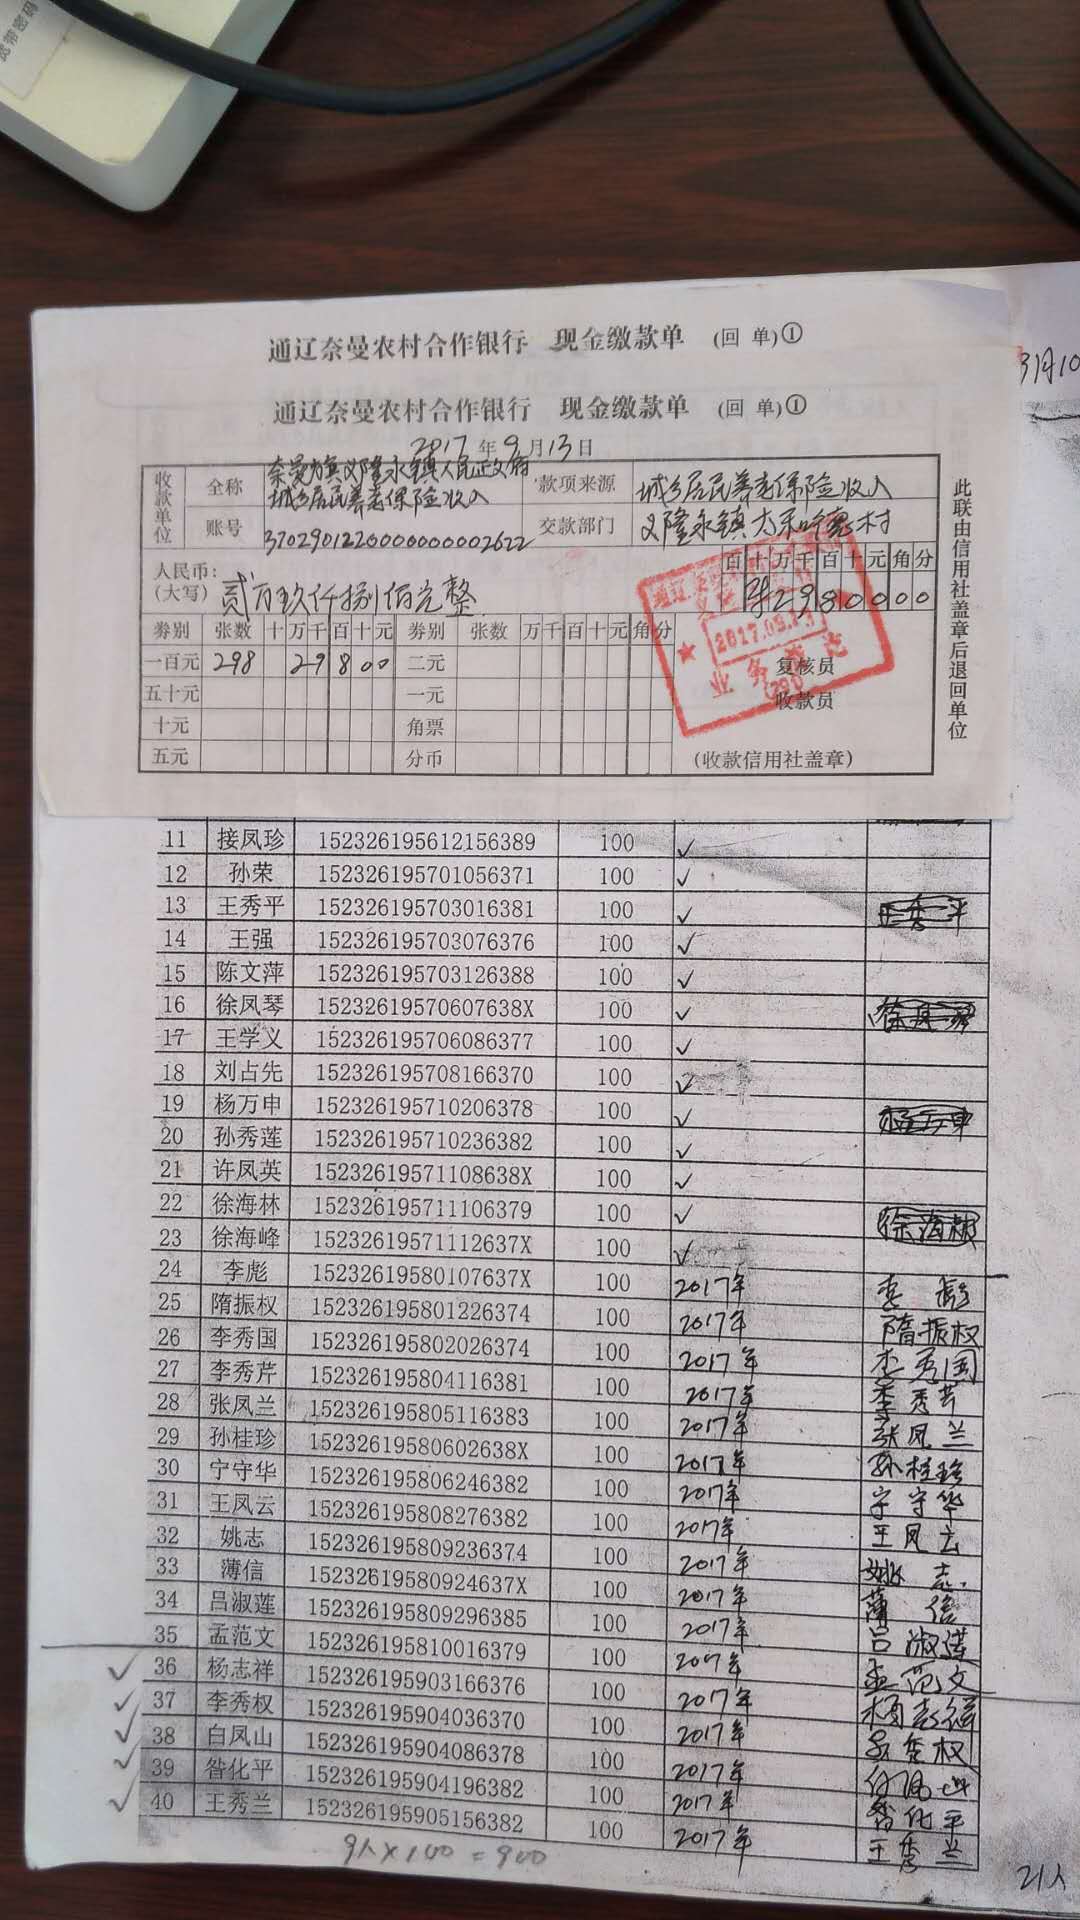 宽带密码
通辽奈曼农村合作银行 现金缴款单 (回 单)①
3月10
通辽奈曼农村合作银行 现金缴款单 (回 单)①
2017 年 9 月 13 日
收款单位 全称 奈曼旗义隆永镇人民政府 城乡居民养老保险收入 款项来源 城乡居民养老保险收入
账号 3702901220000000002622 交款部门 义隆永镇
人民币:(大写) 贰万玖仟捌佰元整 百十万千百十元角分 ¥2980000
券别 张数 十万千百十元 券别 张数 万千百十元角分
一百元 298 29800 二元 复核员
五十元 一元 收款员
十元 角票
五元 分币 (收款信用社盖章)
此联由信用社盖章后退回单位
2017.09.13
11 接凤珍 152326195612156389 100 ✓
12 孙荣 152326195701056371 100 ✓
13 王秀平 152326195703016381 100 ✓ 王秀平
14 王强 152326195703076376 100 ✓
15 陈文萍 152326195703126388 100 ✓
16 徐凤琴 15232619570607638X 100 ✓
17 王学义 152326195706086377 100 ✓
18 刘占先 152326195708166370 100 ✓
19 杨万申 152326195710206378 100 ✓
20 孙秀莲 152326195710236382 100 ✓
21 许凤英 15232619571108638X 100 ✓
22 徐海林 152326195711106379 100 ✓ 徐海林
23 徐海峰 15232619571112637X 100 ✓
24 李彪 15232619580107637X 100 2017年 李彪
25 隋振权 152326195801226374 100 2017年 隋振权
26 李秀国 152326195802026374 100 2017年 李秀国
27 李秀芹 152326195804116381 100 2017年 李秀芹
28 张凤兰 152326195805116383 100 2017年 张凤兰
29 孙桂珍 15232619580602638X 100 2017年 孙桂珍
30 宁守华 152326195806246382 100 2017年 宁守华
31 王凤云 152326195808276382 100 2017年 王凤云
32 姚志 152326195809236374 100 2017年 姚志
33 薄信 15232619580924637X 100 2017年 薄信
34 吕淑莲 152326195809296385 100 2017年 吕淑莲
35 孟范文 152326195810016379 100 2017年 孟范文
✓ 36 杨志祥 152326195903166376 100 2017年 杨志祥
✓ 37 李秀权 152326195904036370 100 2017年 李秀权
✓ 38 白凤山 152326195904086378 100 2017年 白凤山
✓ 39 昝化平 152326195904196382 100 2017年 昝化平
✓ 40 王秀兰 152326195905156382 100 2017年 王秀兰
9人×100=900
21人